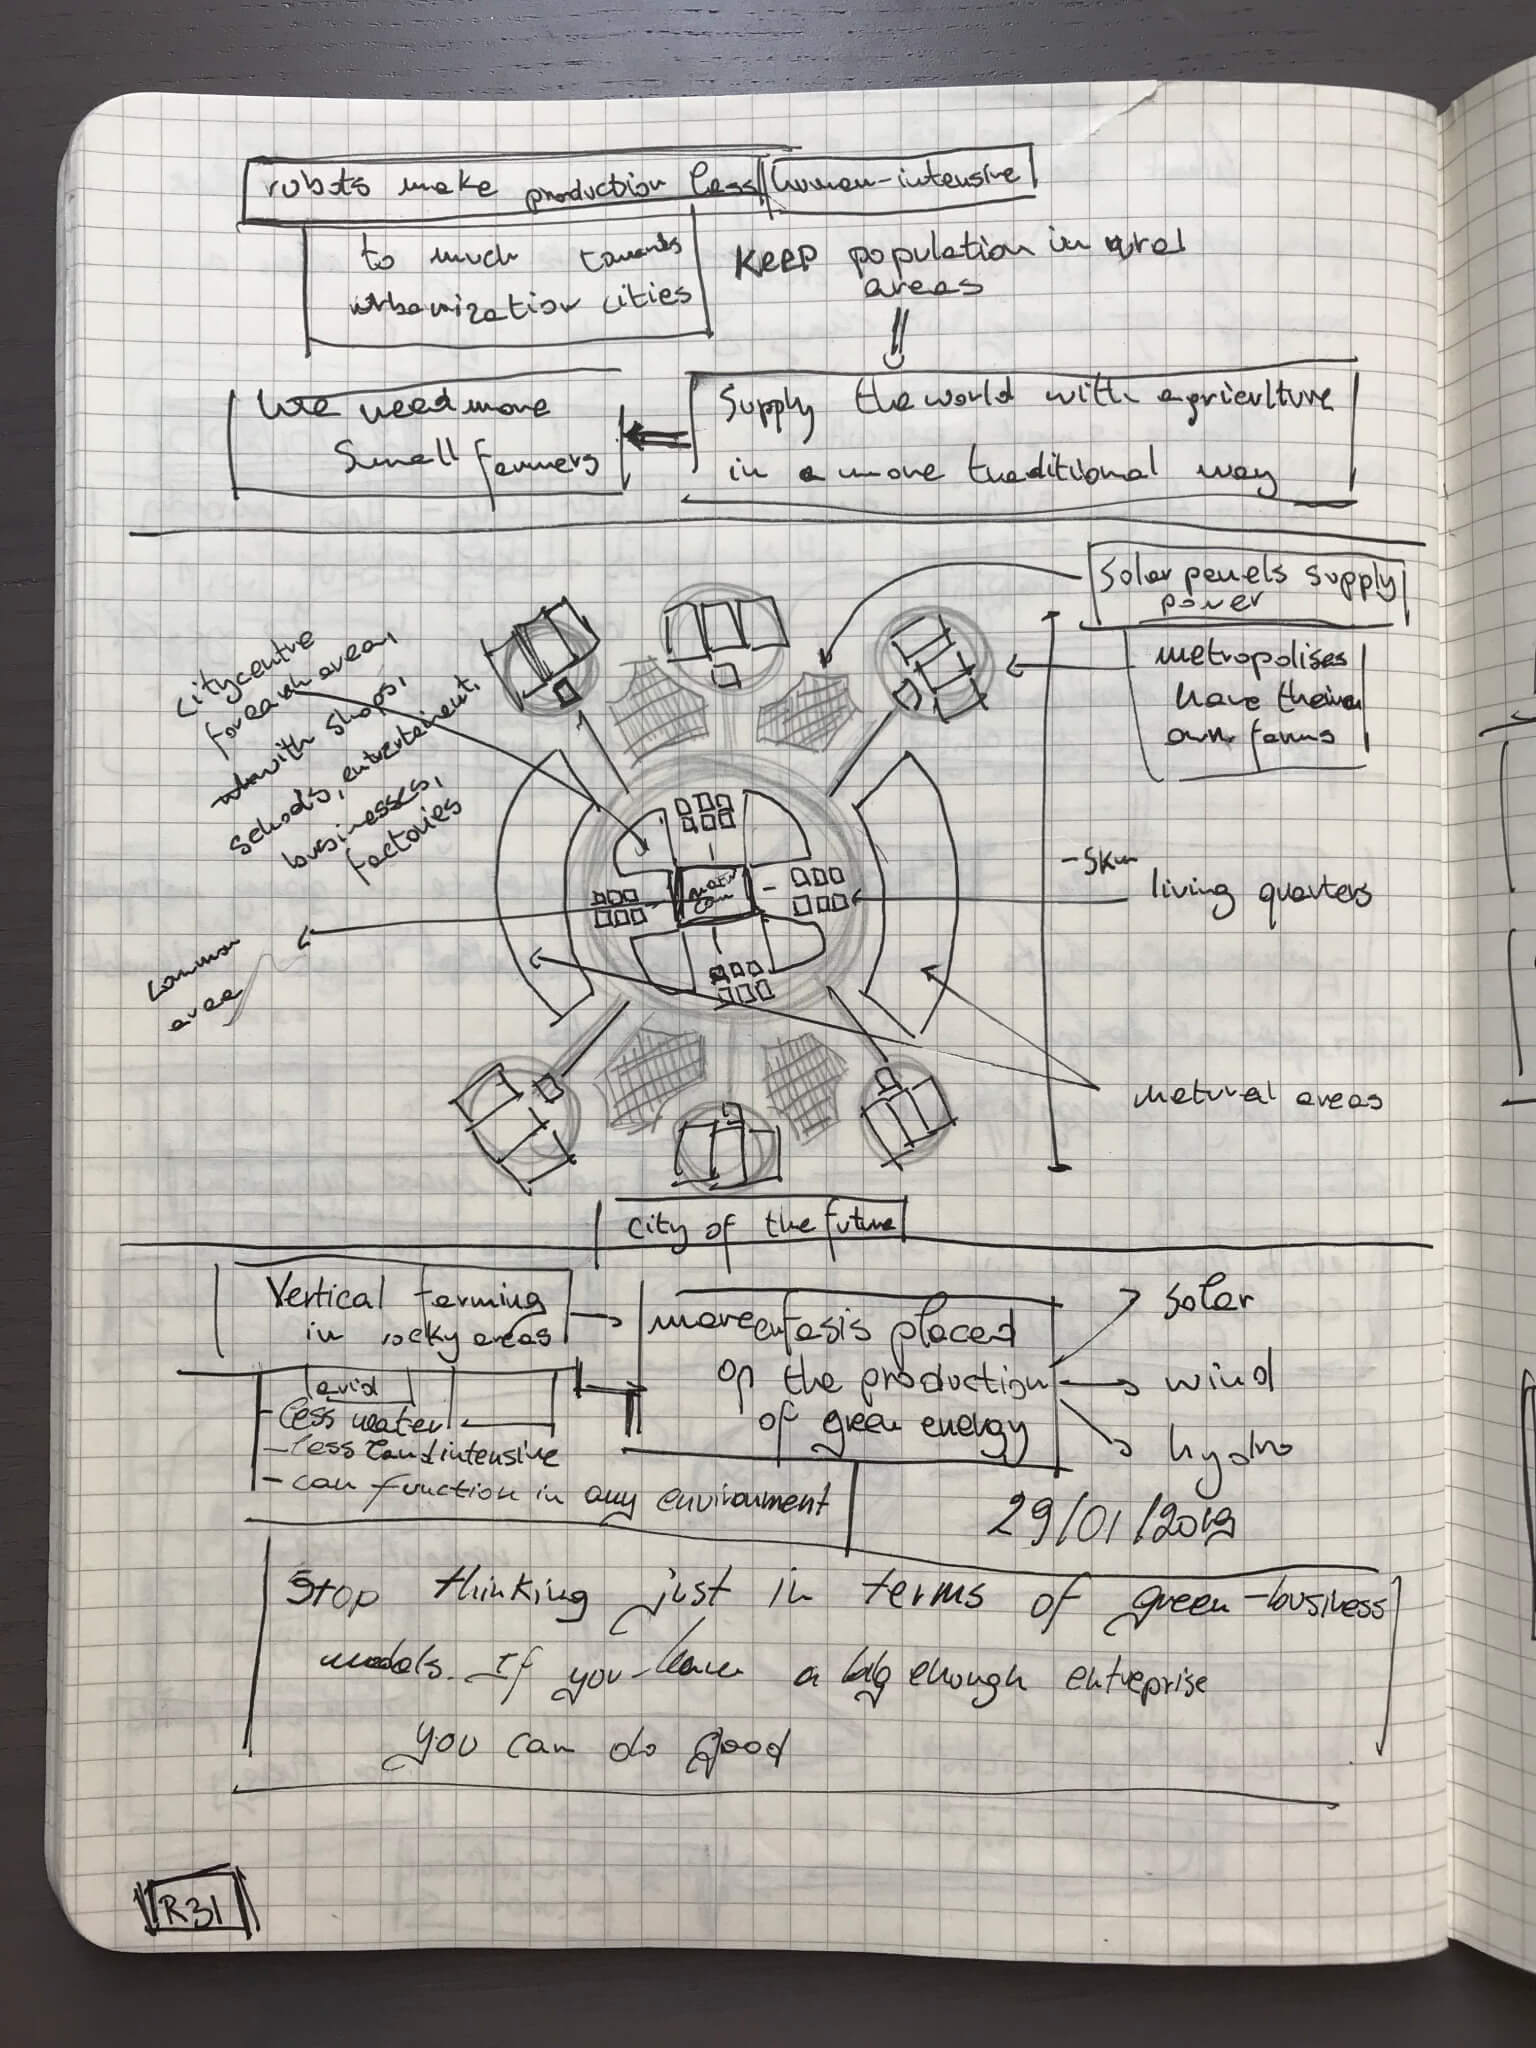 robots make production less human-intensive
to much towards
urbanization cities
KEEP population in rural
areas
We need more
Small farmers
Supply the world with agriculture
in a more traditional way
Solar panels supply
power
metropolises
have their
own farms
City centre
for each area,
with shops,
schools, enterteiment,
businesses,
factories
-5km
living quarters
common
area
natural areas
City of the future
Vertical farming
in rocky areas
arid
- less water
- less land intensive
- can function in any environment
more emfasis placed
on the production
of green energy
solar
wind
hydro
29/01/2019
Stop thinking just in terms of green-business
models. If you have a big enough entreprise
you can do good
R31